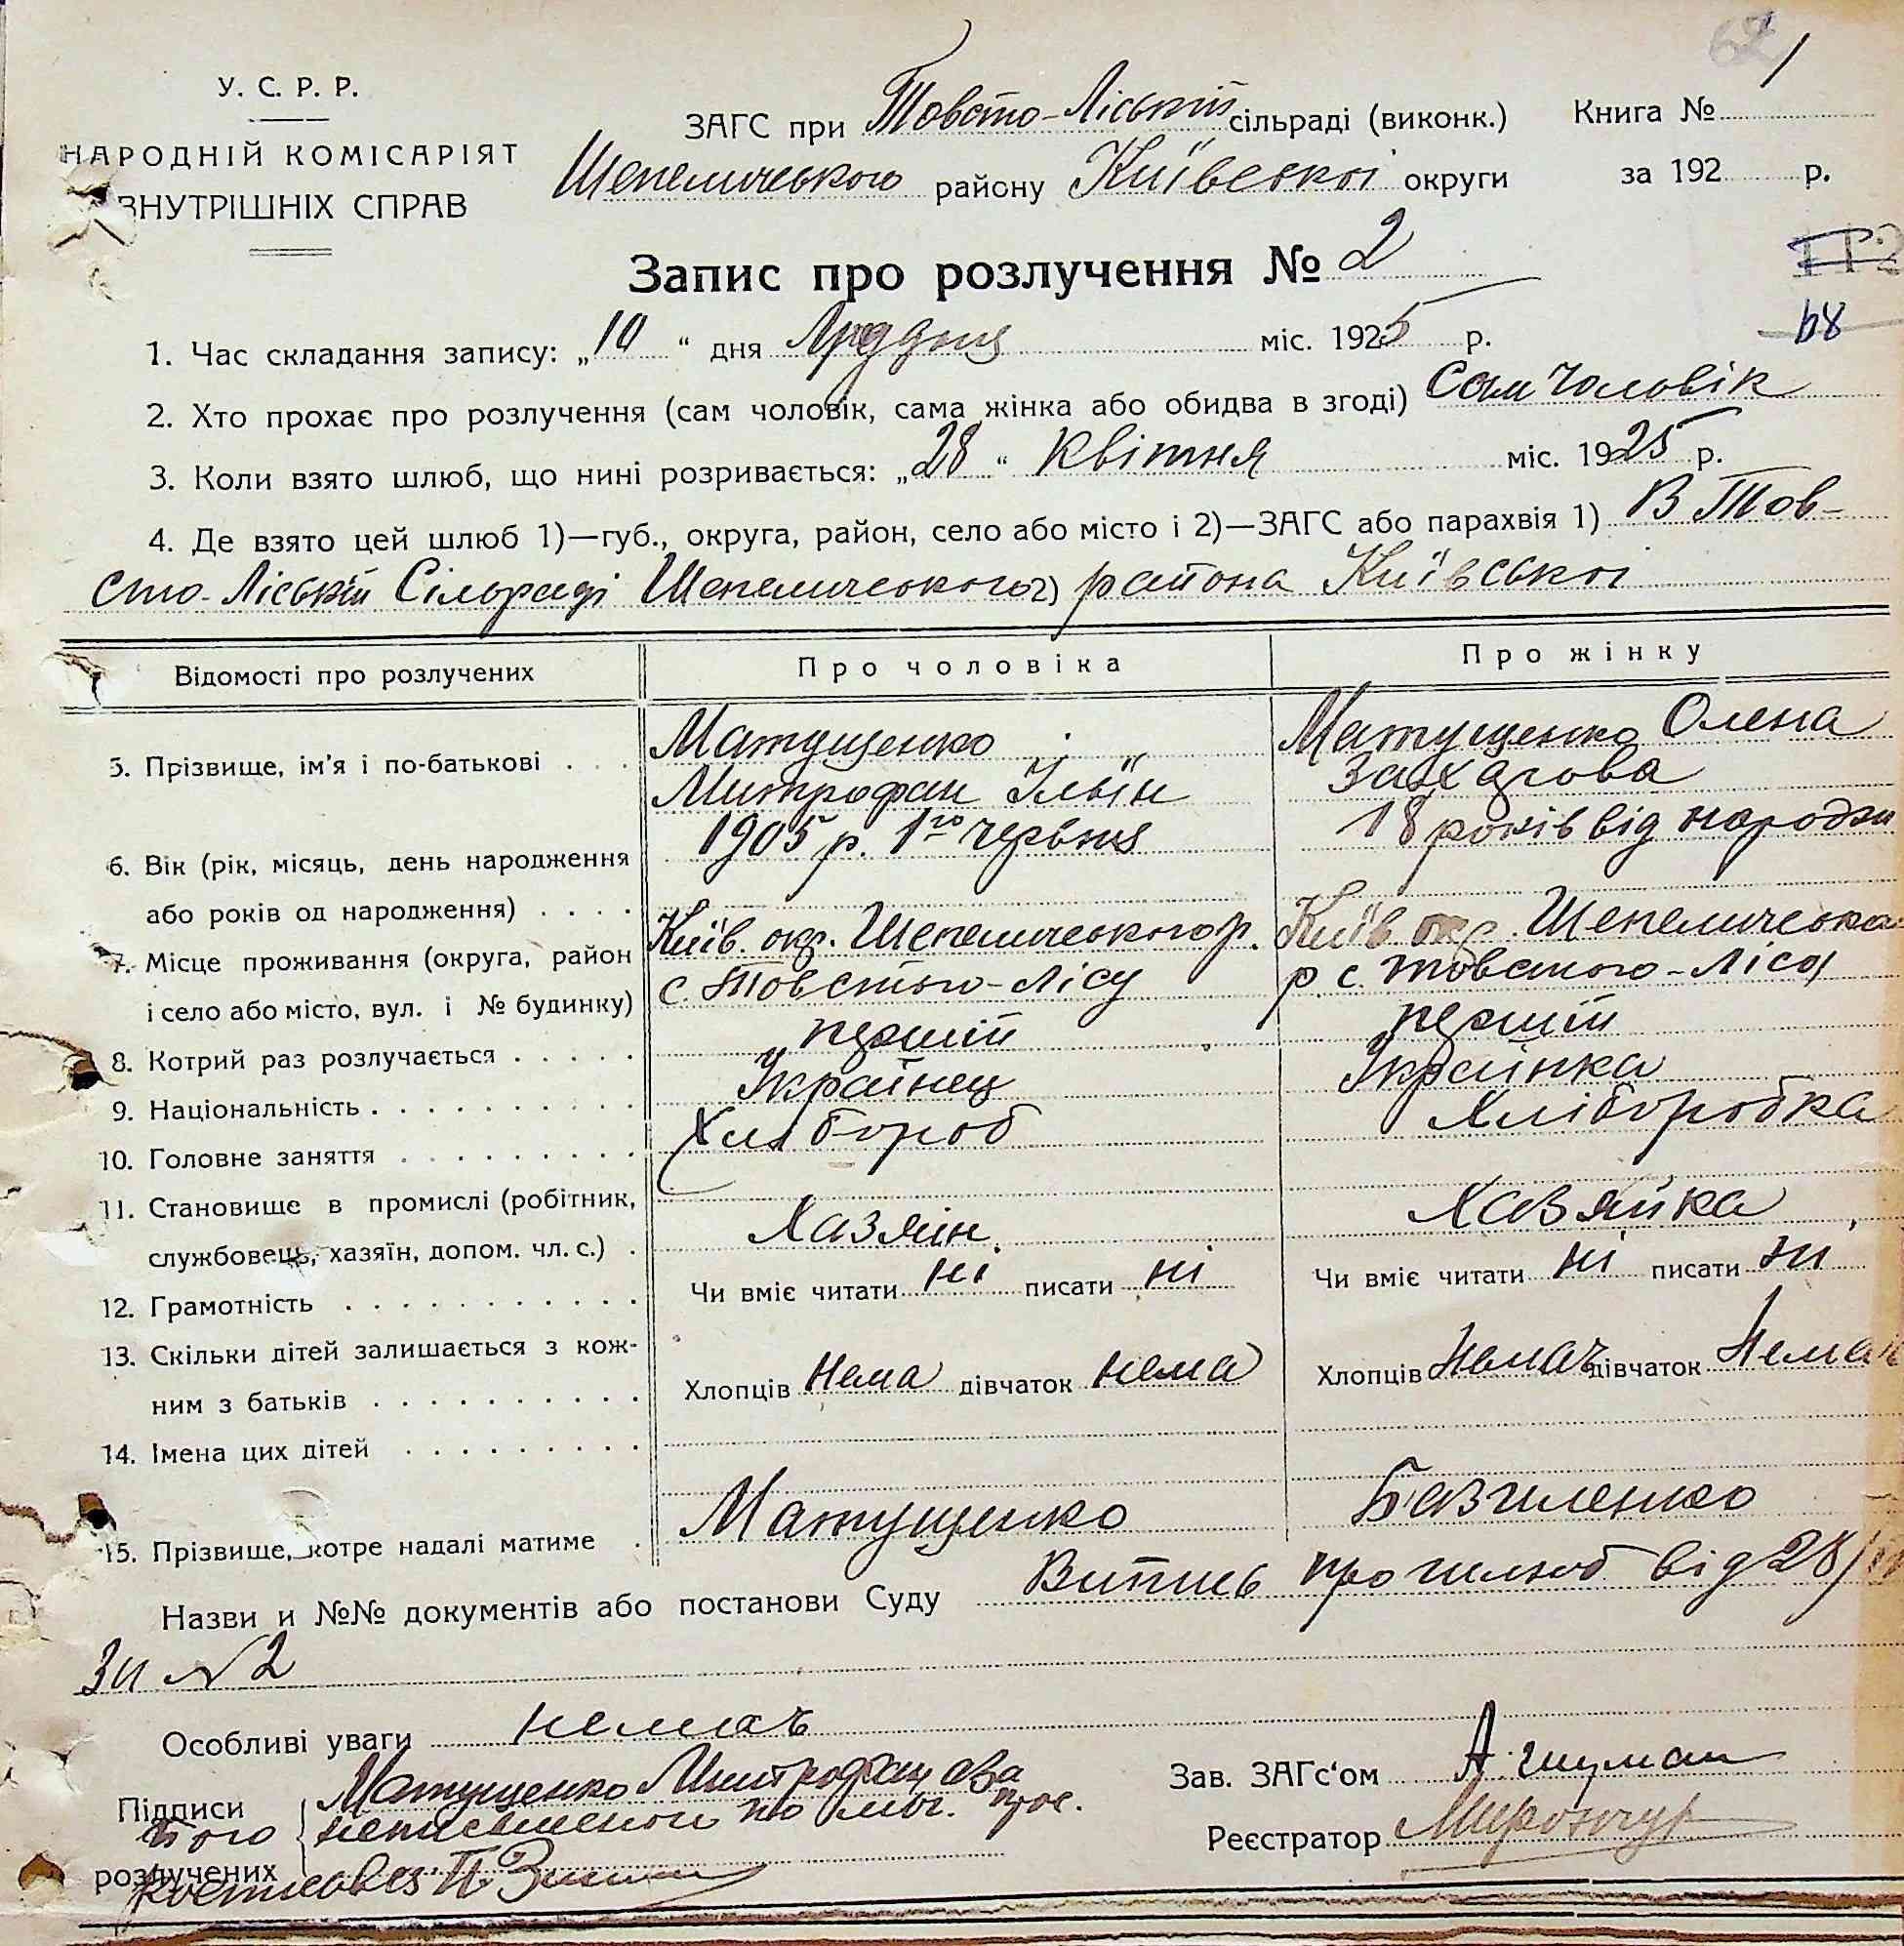 62 1
У. С. Р. Р.
НАРОДНІЙ КОМІСАРІЯТ
ВНУТРІШНІХ СПРАВ
ЗАГС при Товсто-Ліській сільраді (виконк.) Книга №
Шепелического району Київської округи за 192 р.
Запис про розлучення № 2
68
1. Час складання запису: „10“ дня Грудня міс. 1925 р.
2. Хто прохає про розлучення (сам чоловік, сама жінка або обидва в згоді) Сам Чоловік
3. Коли взято шлюб, що нині розривається: „28“ Квітня міс. 1925 р.
4. Де взято цей шлюб 1)—губ., округа, район, село або місто і 2)—ЗАГС або парахвія 1) В Тов-
сто-Ліській Сільраді Шепелического 2) района Київської
Відомості про розлучених Про чоловіка Про жінку
5. Прізвище, ім'я і по-батькові Матущенко Митрофан Ільїн Матущенко Олена Захарова
6. Вік (рік, місяць, день народження або років од народження) 1905 р. 1го червня 18 років від народжн
7. Місце проживання (округа, район і село або місто, вул. і № будинку) Київ. окр. Шепелического р. с. Товстого-Лісу Київ окр. Шепелическа р. с. Товстого-Ліса
8. Котрий раз розлучається перший перший
9. Національність Українец Українка
10. Головне заняття Хлібороб Хліборобка
11. Становище в промислі (робітник, службовець, хазяїн, допом. чл. с.) Хазяин Хазяйка
12. Грамотність Чи вміє читати ні писати ні Чи вміє читати ні писати ни
13. Скільки дітей залишається з кожним з батьків Хлопців Нема дівчаток нема Хлопців Немає дівчаток Немає
14. Імена цих дітей
15. Прізвище, котре надалі матиме Матущенко Базиленко
Назви и №№ документів або постанови Суду Випись про шлюб від 28/
За № 2
Особливі уваги немає
Підписи розлучених Матущенко Митрофан
неписьменого по
П. Зинич
Зав. ЗАГс'ом А. Шуман
Реєстратор